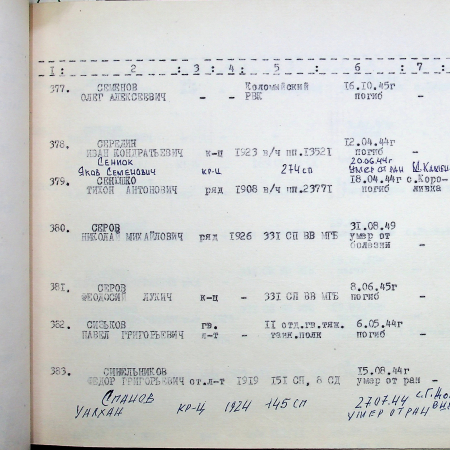 1: 2 : 3 : 4 : 5 : 6 : 7 :
377. СЕМЕНОВ Коломыйский 16.10.45г
ОЛЕГ АЛЕКСЕЕВИЧ - - РВК погиб -
378. СЕРЕДИН 12.04.44г
ИВАН КОНДРАТЬЕВИЧ к-ц 1923 в/ч пп.13521 погиб -
Сенюк 20.06.44г
Яков Семенович кр-ц 274 сп умер от ран
379. СЕНЬШКО 18.04.44г с.Коро-
ТИХОН АНТОНОВИЧ ряд 1908 в/ч пп.23771 погиб ливка
380. СЕРОВ 31.08.49
НИКОЛАЙ МИХАЙЛОВИЧ ряд 1926 331 СП ВВ МГБ умер от -
болезни
381. СЕРОВ 8.06.45г
ФЕОДОСИЙ ЛУКИЧ к-ц - 331 СП ВВ МГБ погиб -
382. СИЗЬКОВ гв. II отд.гв.тяж. 6.05.44г
ПАВЕЛ ГРИГОРЬЕВИЧ л-т - танк.полк погиб -
383. СИНЕЛЬНИКОВ 15.08.44г
ФЕДОР ГРИГОРЬЕВИЧ ст.л-т 1919 151 СП, 8 СД умер от ран -
Спанов 27.07.44
Уалхан кр-ц 1924 145 сп умер от ран